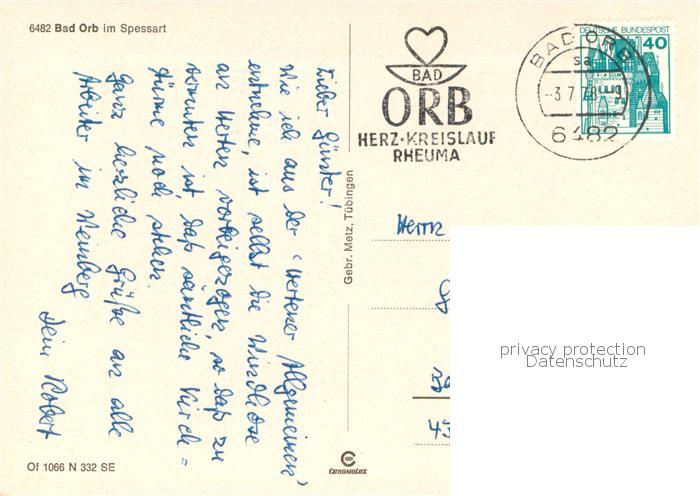 6482 Bad Orb im Spessart
Lieber Günter!
Wie ich aus der "Hertener Allgemeinen"
entnehme, ist selbst die Windhose
an Herten vorbeigezogen, so daß zu
vermuten ist, daß sämtliche Kirch=
türme noch stehen.
Ganz herzliche Grüße an alle
Arbeiter im Weinberg
Dein Robert
Of 1066 N 332 SE
Gebr. Metz, Tübingen
CHROMOLUX
BAD
ORB
HERZ·KREISLAUF
RHEUMA
BAD ORB
sa
-3.7.78-9
6482
DEUTSCHE BUNDESPOST
40
Herrn
privacy protection
Datenschutz